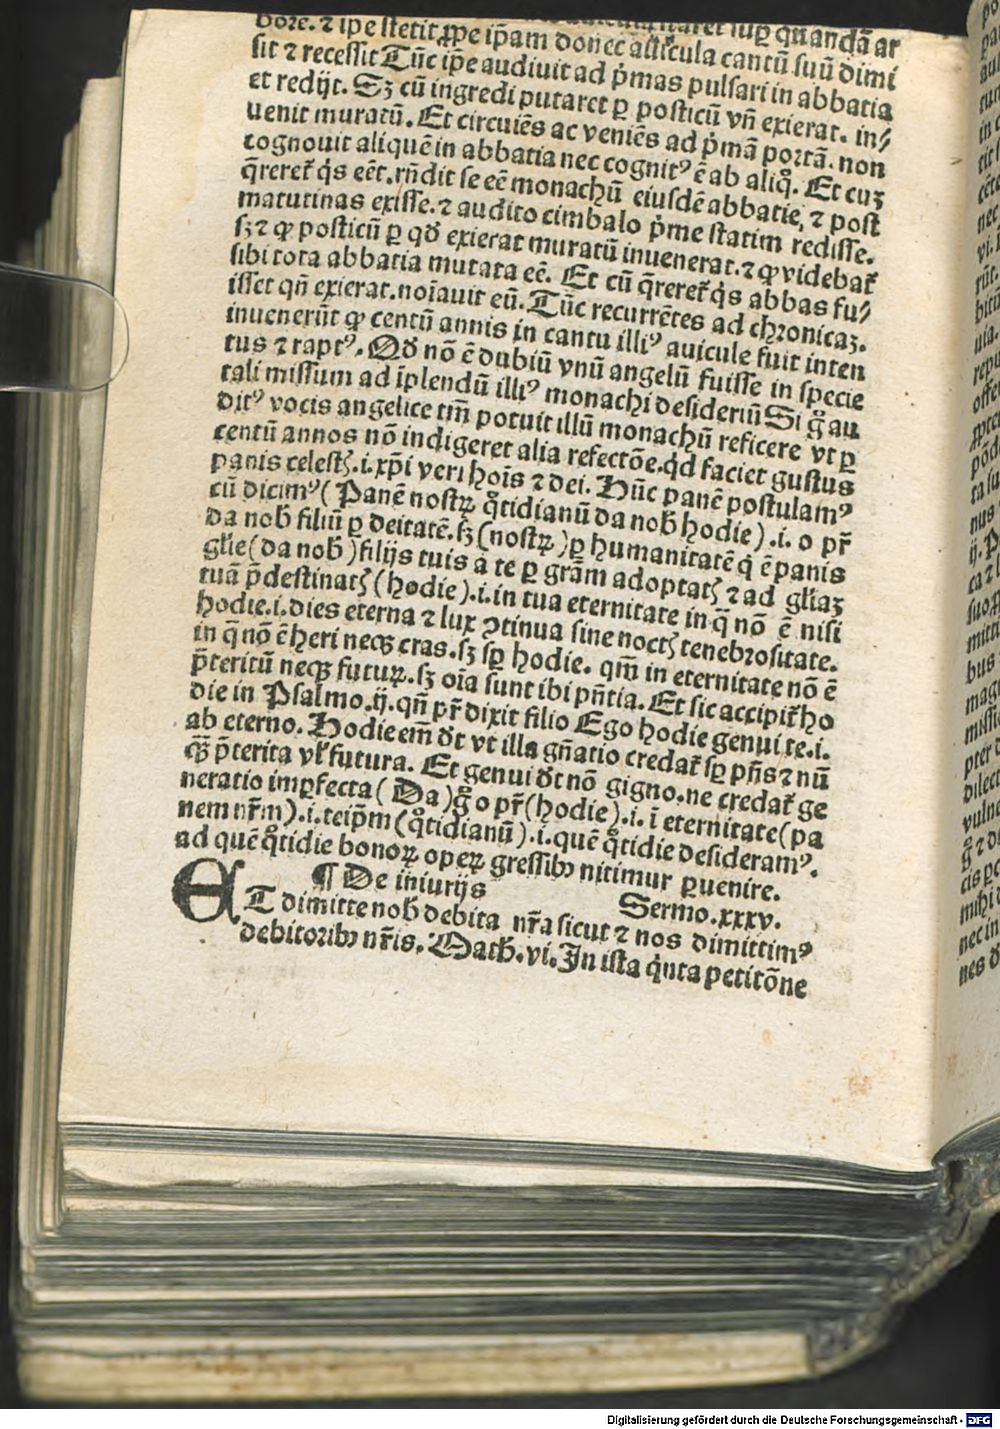 bore. ⁊ ip̄e stetit ꝓpe ip̄am donec auicula cantū suū dimi
sit ⁊ recessit Tūc ip̄e audiuit ad p̍mas pulsari in abbatia
et redijt. Sꝫ cū ingredi putaret ꝑ posticū vn̄ exierat. in⸗
uenit muratū. Et circuiēs ac veniēs ad p̍mā portā. non
cognouit aliquē in abbatia nec cognitꝰ ē ab aliq̊. Et cuꝫ
q̄rereť q̍s eēt. rn̄dit se eē monachū eiusdē abbatie, ⁊ post
matutinas exisse. ⁊ audito cimbalo p̍me statim redisse.
sꝫ ⁊ ꝙ posticū ꝑ qđ exierat muratū inuenerat. ⁊ ꝙ videbať
sibi tota abbatia mutata eē. Et cū q̄rereť q̍s abbas fu⸗
isset qn̄ exierat. noīauit eū. Tūc recurrētes ad chronicaꝫ.
inuenerūt ꝙ centū annis in cantu illiꝰ auicule fuit inten
tus ⁊ raptꝰ. Qđ nō ē dubiū vnū angelū fuisse in specie
tali missum ad īplendū illiꝰ monachi desideriū Si g̊ au
ditꝰ vocis angelice tm̄ potuit illū monachū reficere vt ꝑ
centū annos nō indigeret alia refectōe. qd̍ faciet gustus
panis celestꝭ. i. xp̄i veri hoīs ⁊ dei. Hūc panē postulamꝰ
cū dicimꝰ (Panē nostꝝ q̊tidianū da nob̄ hodie). i. o pr̄
da nob̄ filiū ꝑ deitatē. sꝫ (nostꝝ) ꝑ humanitatē q̍ ē panis
gl̄ie (da nob̄) filijs tuis a te ꝑ grām adoptatꝭ ⁊ ad gl̄iaꝫ
tuā p̄destinatꝭ (hodie). i. in tua eternitate in q̄ nō ē nisi
hodie. i. dies eterna ⁊ lux ꝯtinua sine noctꝭ tenebrositate.
in q̄ nō ē heri neqꝫ cras. sꝫ sꝑ hodie. qm̄ in eternitate nō ē
p̄teritū neqꝫ futuꝝ. sꝫ oīa sunt ibi pn̄tia. Et sic accipiť ho
die in Psalmo. ij. qn̄ pr̄ dixit filio Ego hodie genui te. i.
ab eterno. Hodie em̄ dr̄ vt illa gn̄atio credať sꝑ pn̄s ⁊ nū
qꝫ p̄terita vl̄ futura. Et genui dr̄ nō gigno. ne credať ge
neratio imꝑfecta (Da) g̊ o pr̄ (hodie). i. ī eternitate (pa
nem nr̄m). i. teip̄m (q̊tidianū). i. quē q̊tidie desideramꝰ.
ad quē q̊tidie bonoꝝ opeꝝ gressibꝰ nitimur ꝑuenire.
¶ De iniurijs Sermo. xxxv.
ET dimitte nob̄ debita nr̄a sicut ⁊ nos dimittimꝰ
debitoribꝰ nr̄is. Math̄. vi. In ista q̍nta petitōne
Digitalisierung gefördert durch die Deutsche Forschungsgemeinschaft - DFG